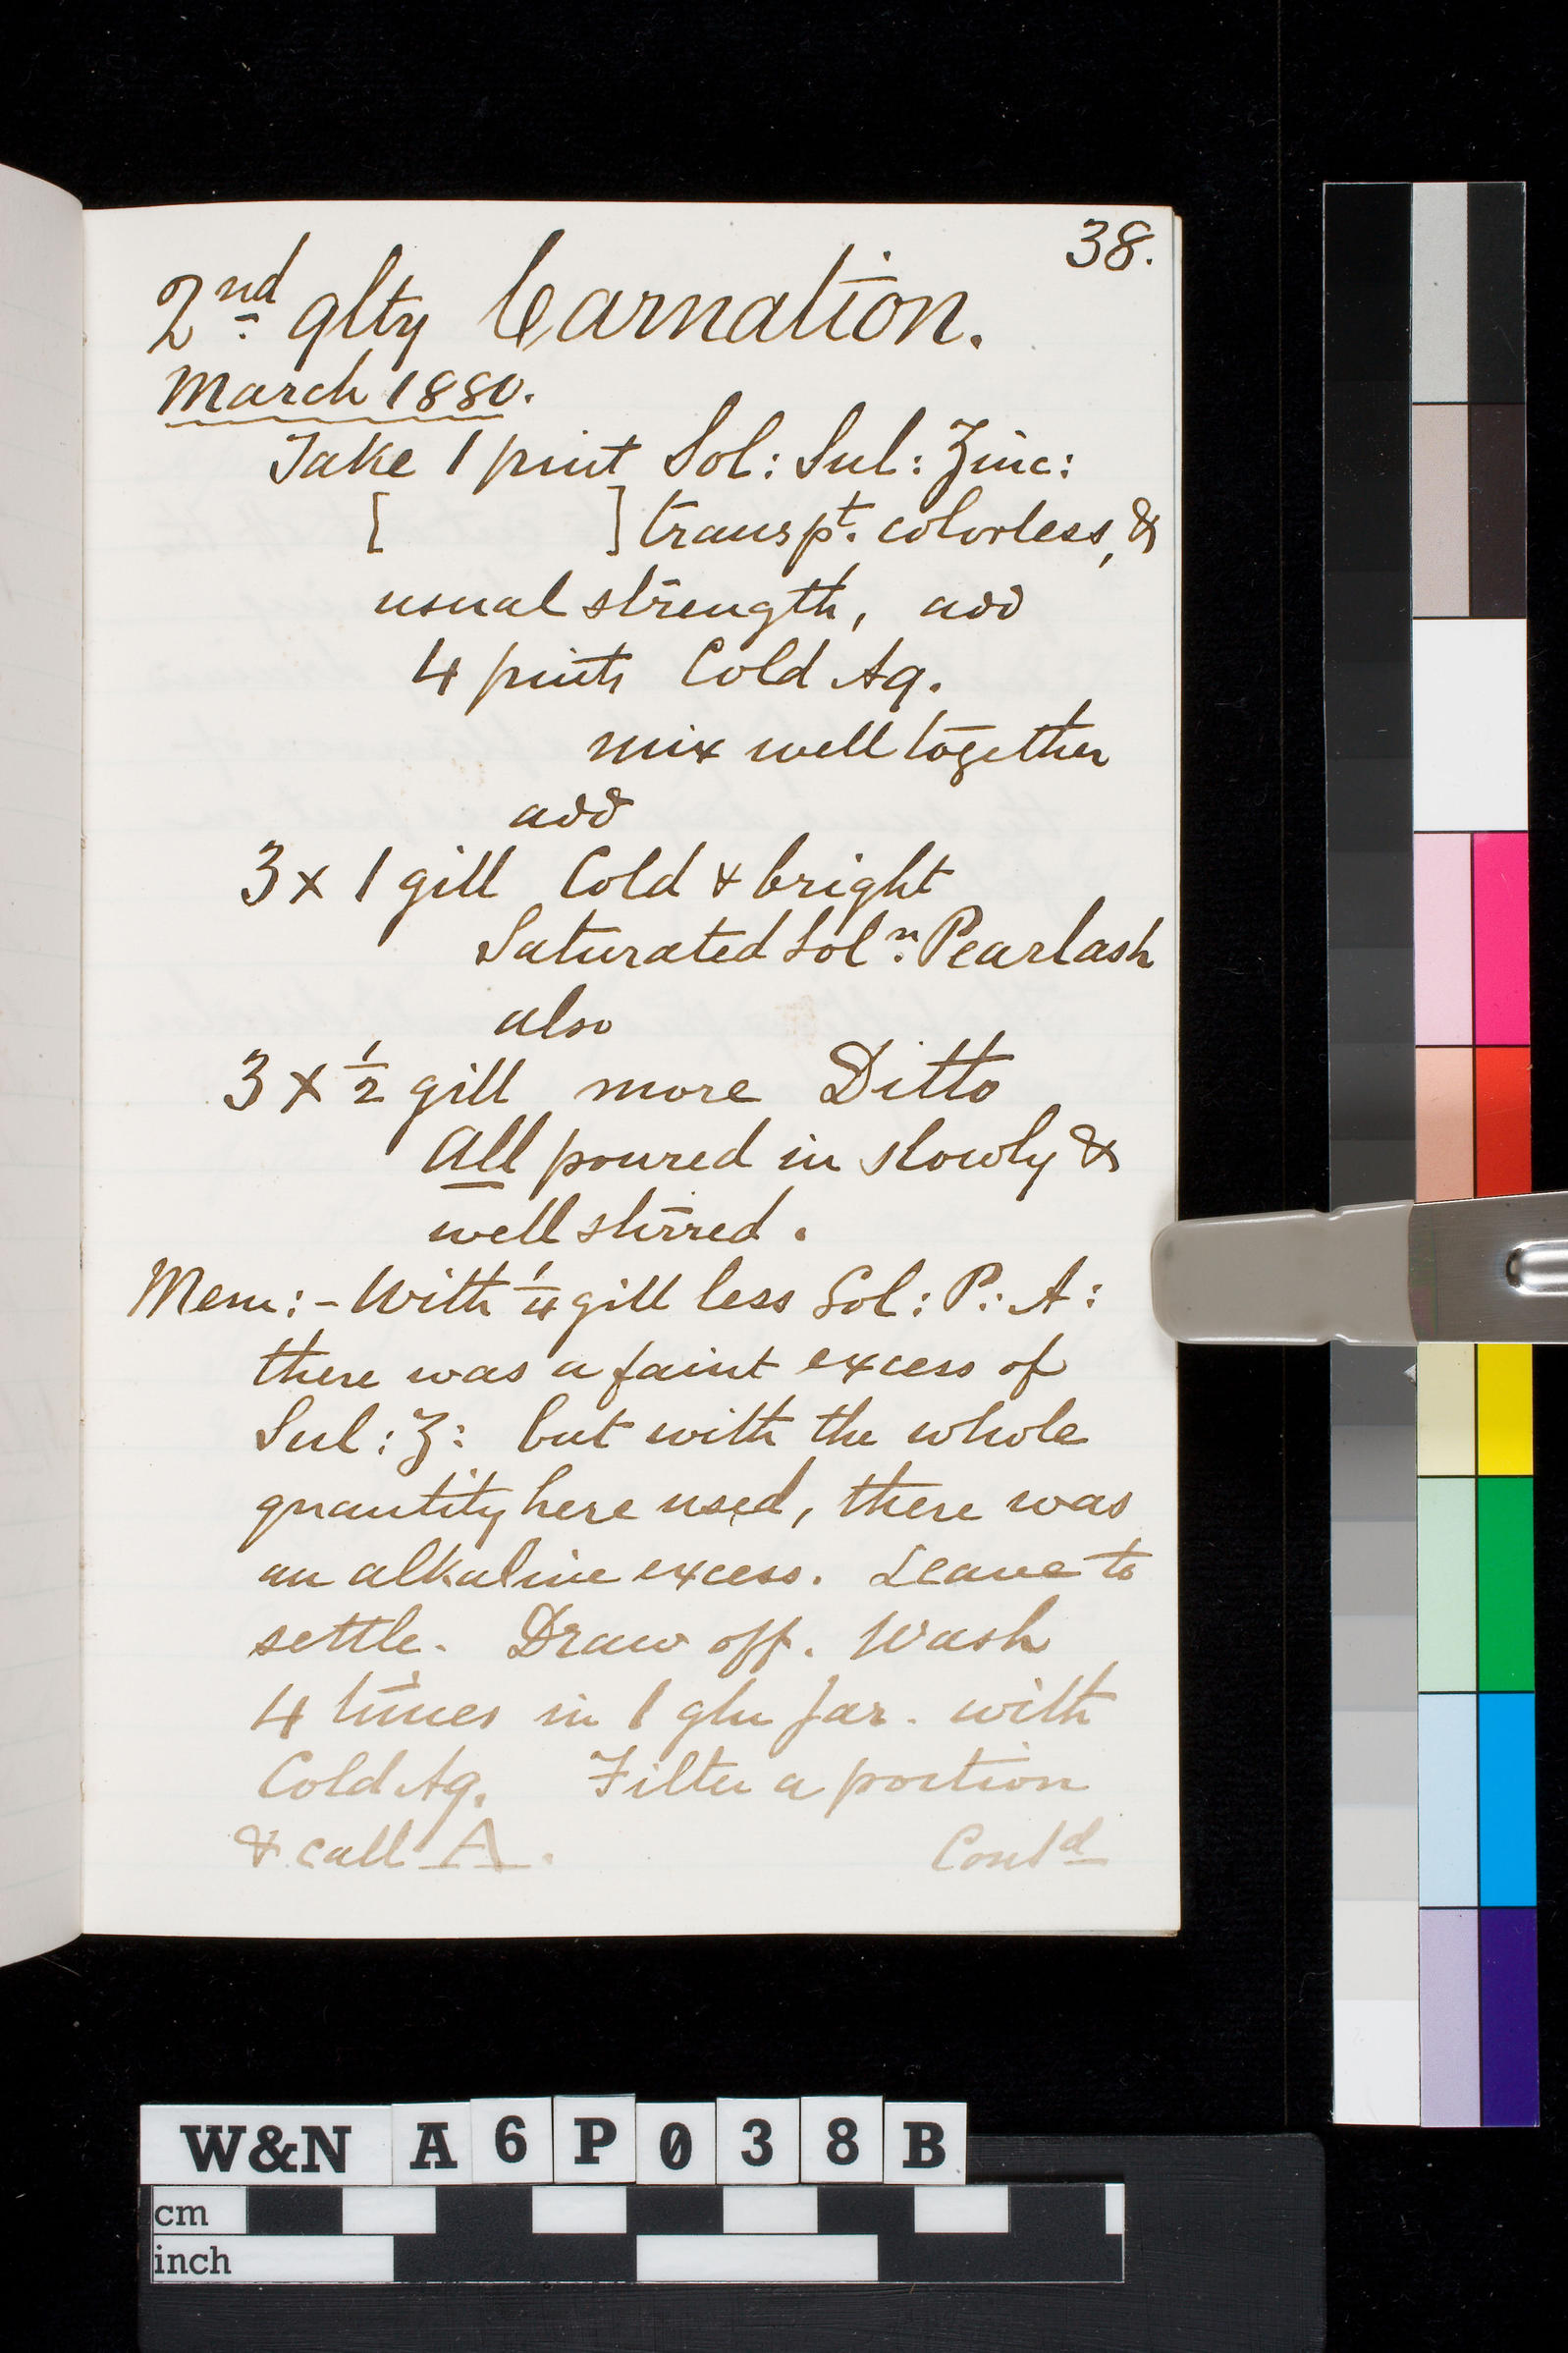 38.
2nd qlty Carnation.
March 1880.
Take 1 pint Sol: Sul: Zinc:
[ ] transpt. colorless, &
usual strength, add
4 pints Cold Aq.
mix well together
add
3 x 1 gill Cold & bright
Saturated Soln. Pearlash
also
3 x 1/2 gill more Ditto
All poured in slowly &
well stirred.
Mem:- With 1/4 gill less Sol: P: A:
there was a faint excess of
Sul: Z: but with the whole
quantity here used, there was
an alkaline excess. Leave to
settle. Draw off. Wash
4 times in 1 gln jar. with
Cold Aq. Filter a portion
& call A.
Contd
W&N A6P038B
cm
inch